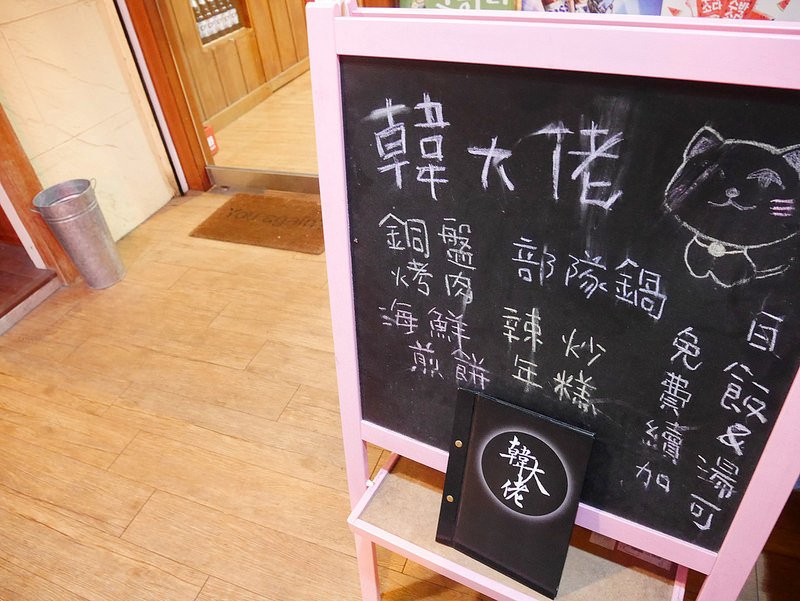 韓大佬
銅盤
烤肉
部隊鍋
海鮮
煎餅
辣炒
年糕
白飯&湯可
免費續加
韓大佬